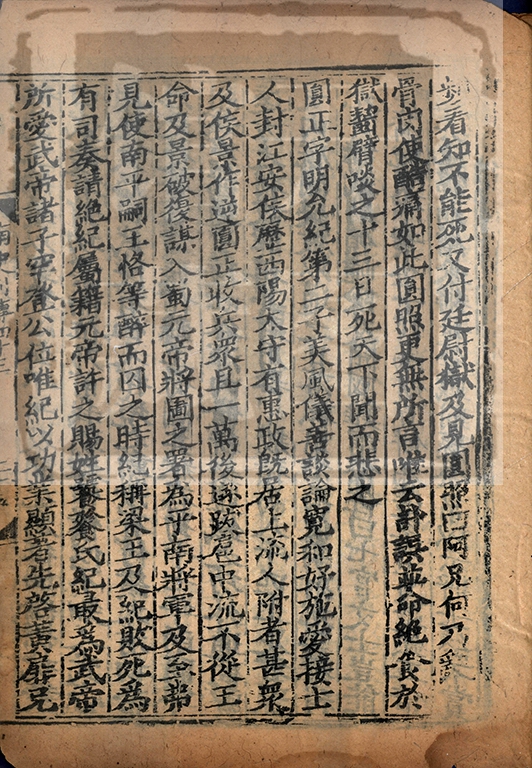 看知不能死又付廷尉獄及見圓照曰阿兄何乃亂
骨肉使酷痛如此圓照更無所言唯云計誤並命絕食於
獄齧臂啖之十三日死天下聞而悲之
圓正字明允紀第二子美風儀善談論寬和好施愛接士
人封江安侯歷西陽太守有惠政既居上流人附者甚衆
及侯景作逆圓正收兵衆且一萬後遂跋扈中流不從王
命及景破復謀入蜀元帝將圖之署為平南將軍及至弗
見使南平嗣王恪等醉而囚之時紀稱梁王及紀敗死為
有司奏請絕紀屬籍元帝許之賜姓饕餮氏紀最爲武帝
所愛武帝諸子罕登公位唯紀以功業顯著先啓黃扉兄
南史列傳四十三